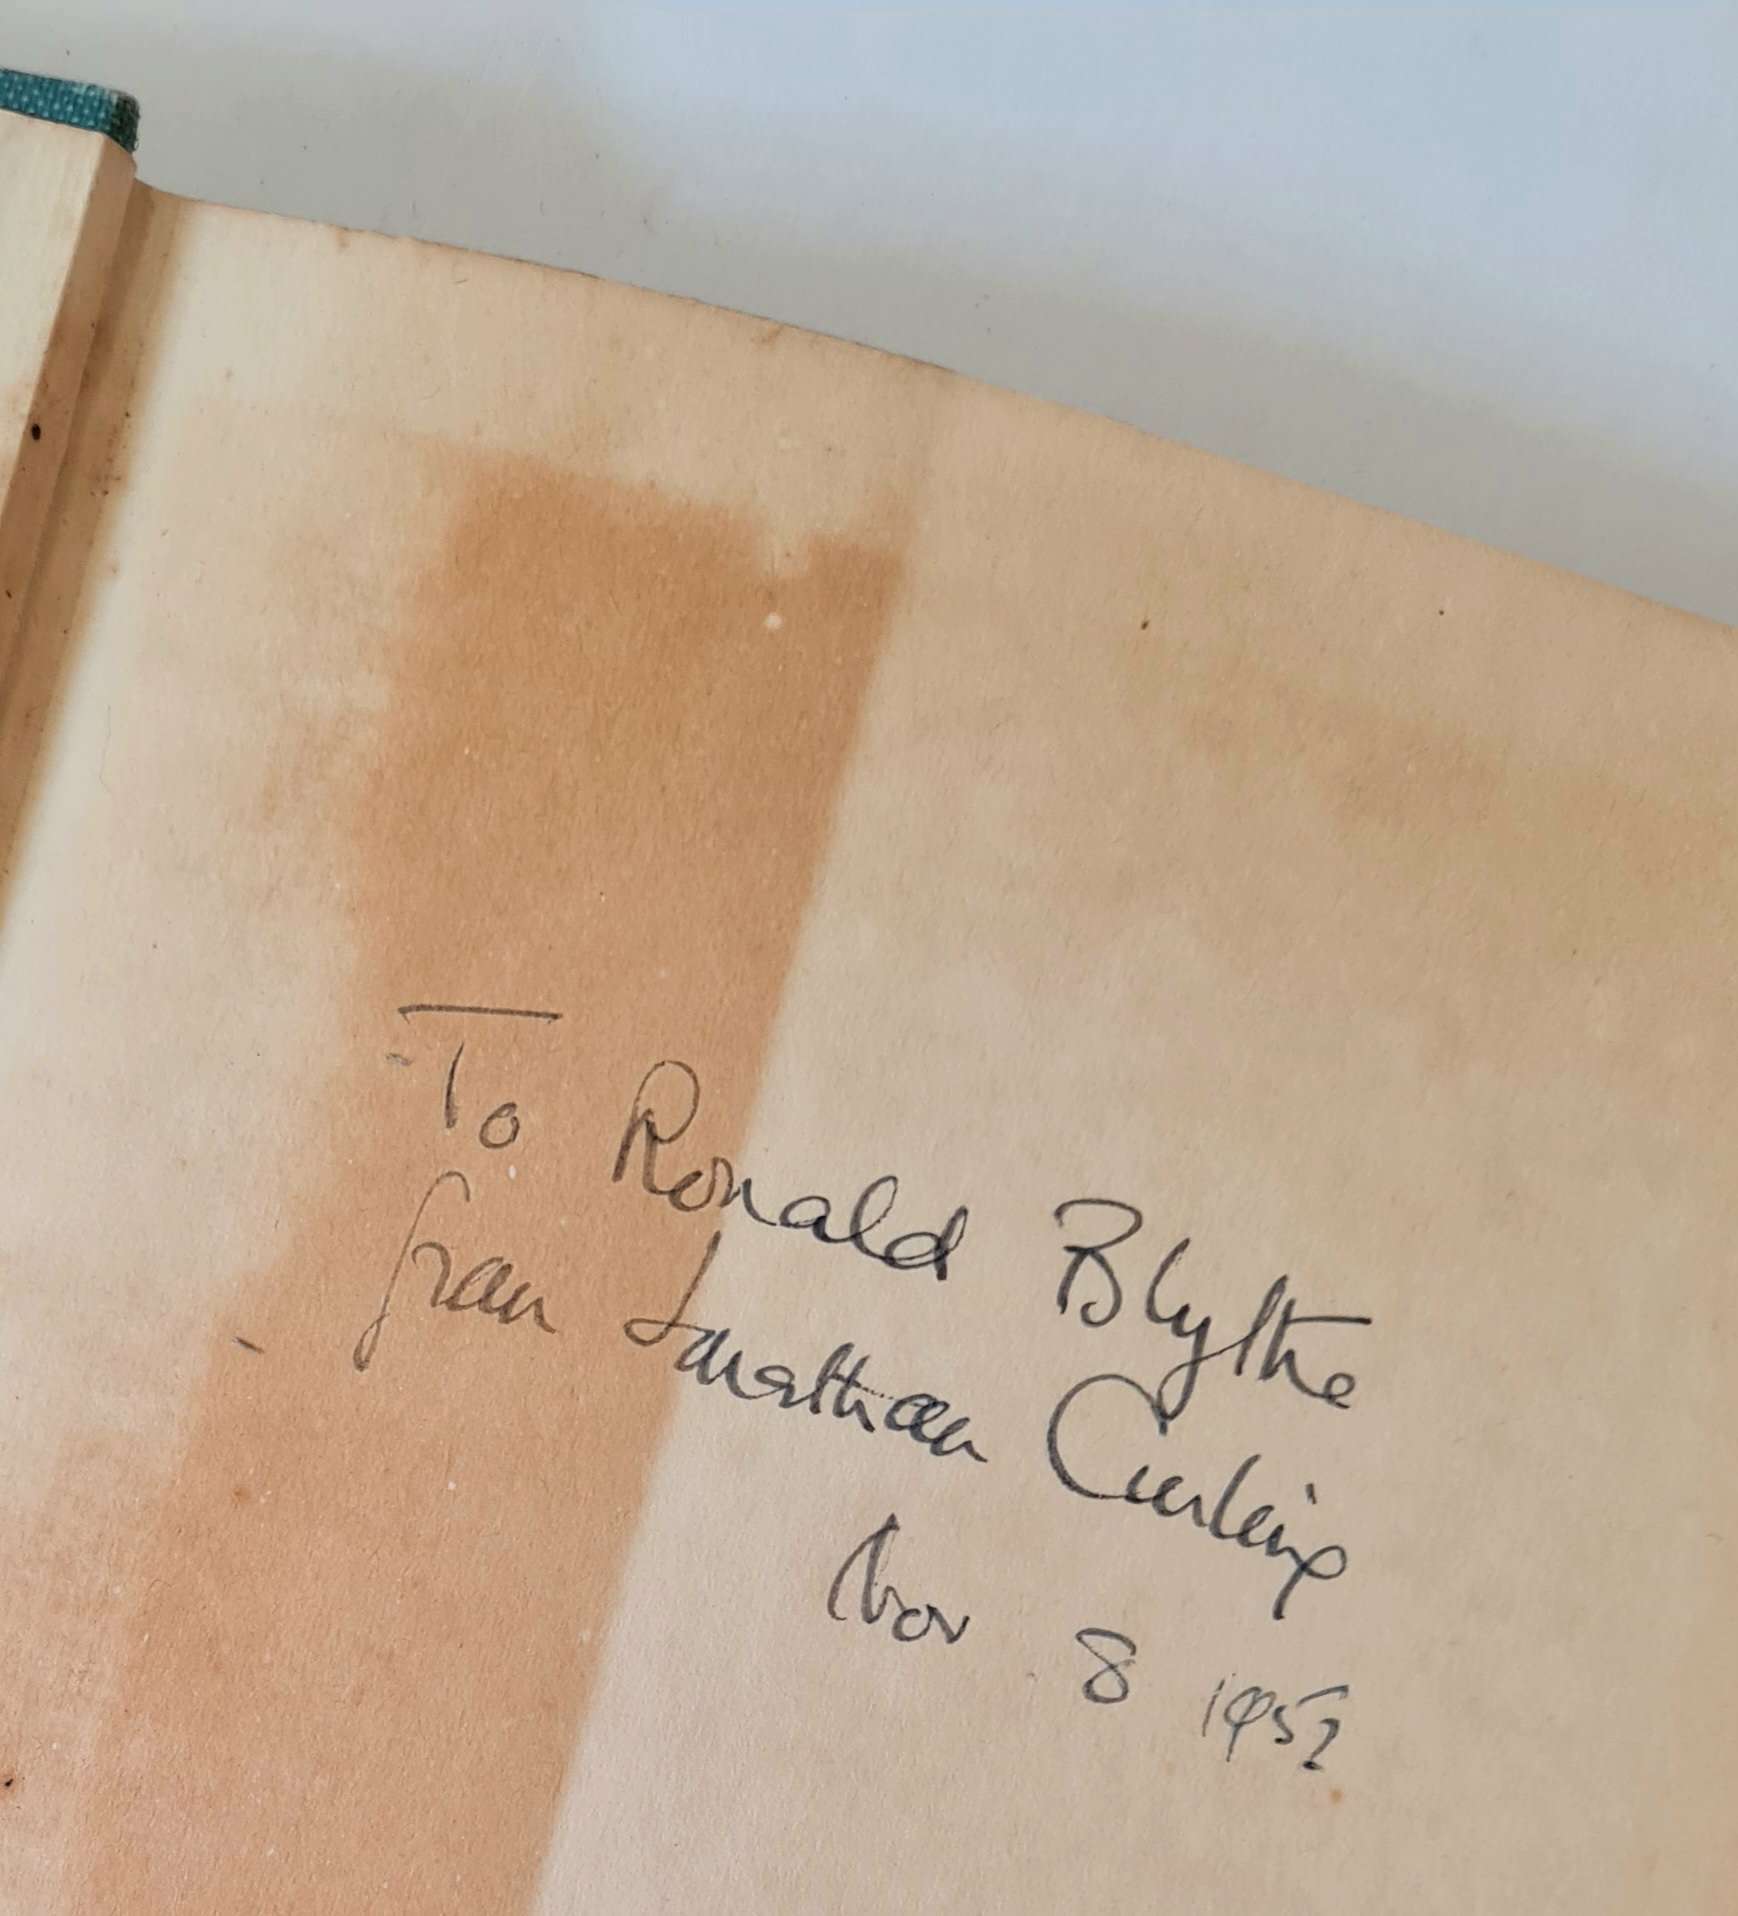 To Ronald Blythe
from Jonathan Curling
Nov 8 1952